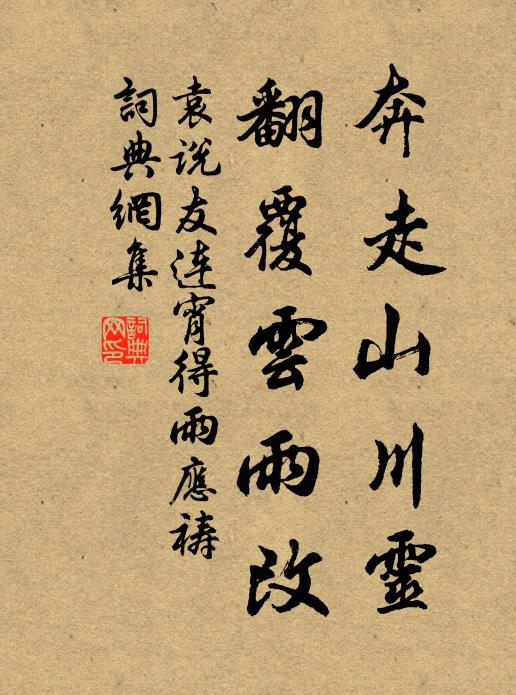 奔走山川靈
翻覆雲雨改
袁說友連宵得雨應禱
詞典網集
詞典網印